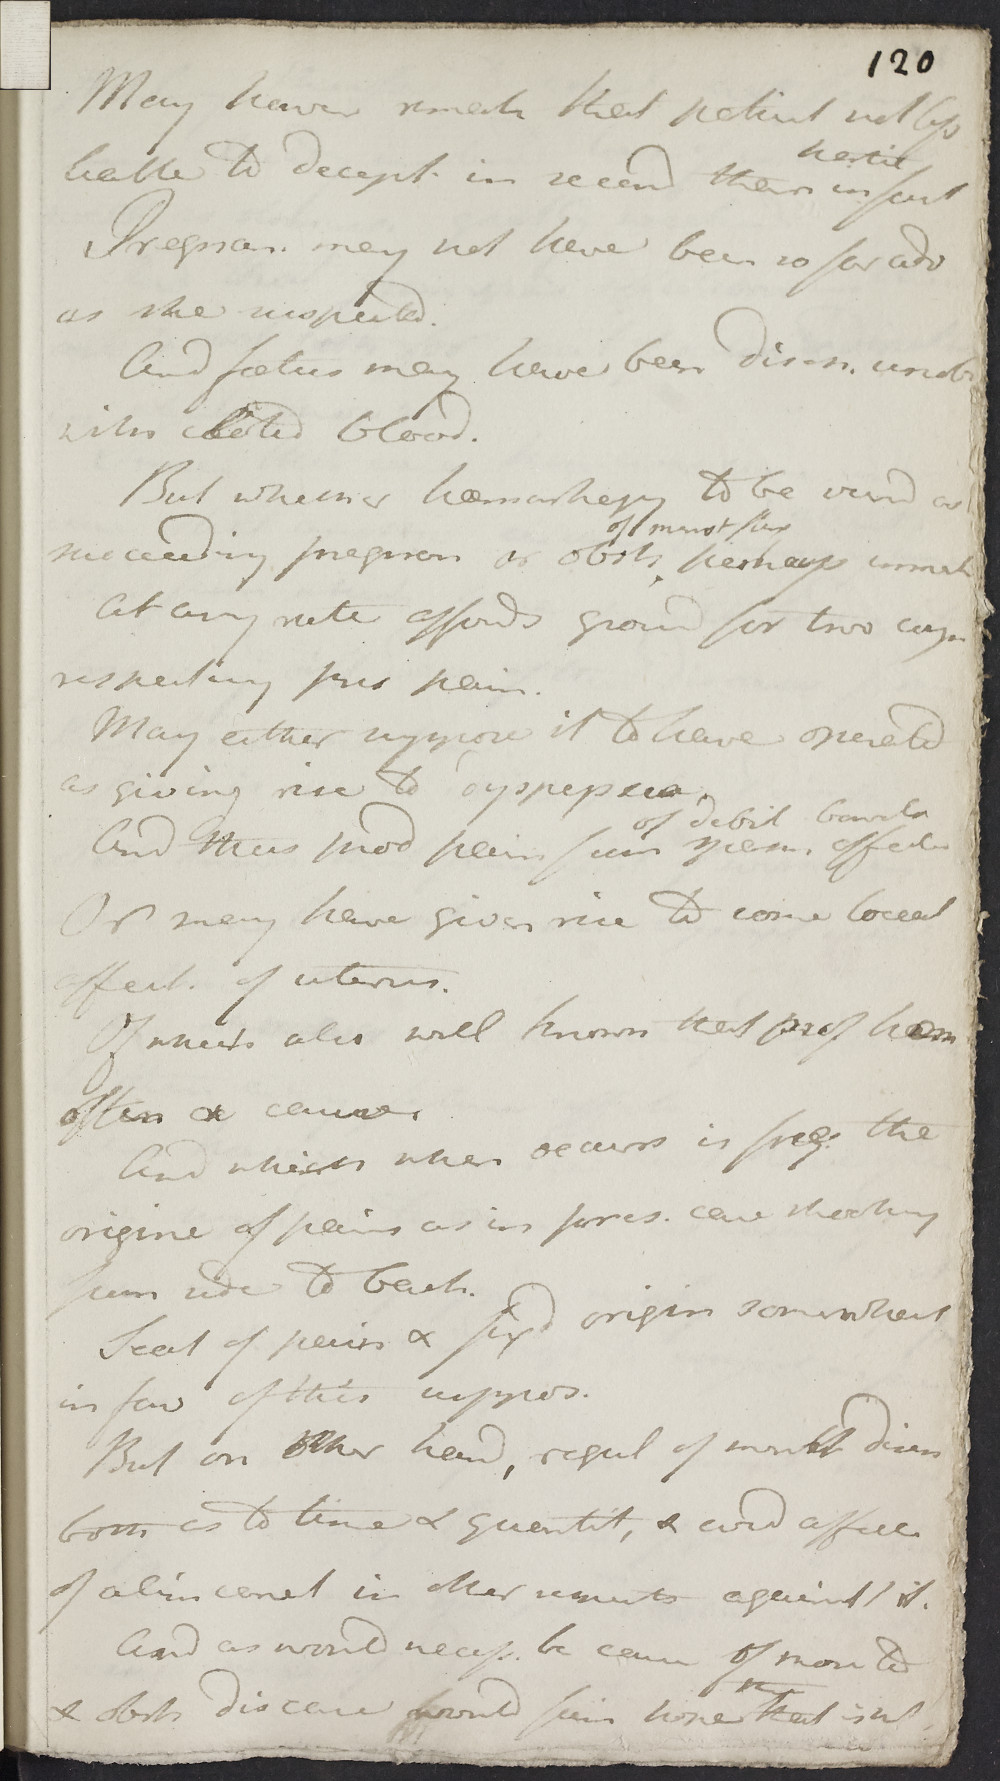 120
May however remark that patient not less
liable to decept. in second than in first
Pregnan. may not have been so far adv
as she suspected.
And foetus may have been disch. unob
with clotted blood.
But whether haemorrhagy to be viewd as
of menst flux
succeeding pregnan or obst, perhaps immat
At any rate affords ground for two conj
respecting pres pain.
May either suppose it to have operated
as giving rise to dyspepsia.
of debil bowels
And thus prod pain from spasm. affect
Or may have given rise to some local
affect. of uterus.
Of which also well known that prof haem
often a cause.
And which when occurs is freq. the
origine of pains as in pres. case shooting
from side to back.
Seat of pain & fixd origin somewhat
in fav of this suppos.
But on other hand, regul of month disch
both as to time & quantit, & evid affect
of alim canal in other respects against it.
And as would necess. be
& obst disease would give hope that is not